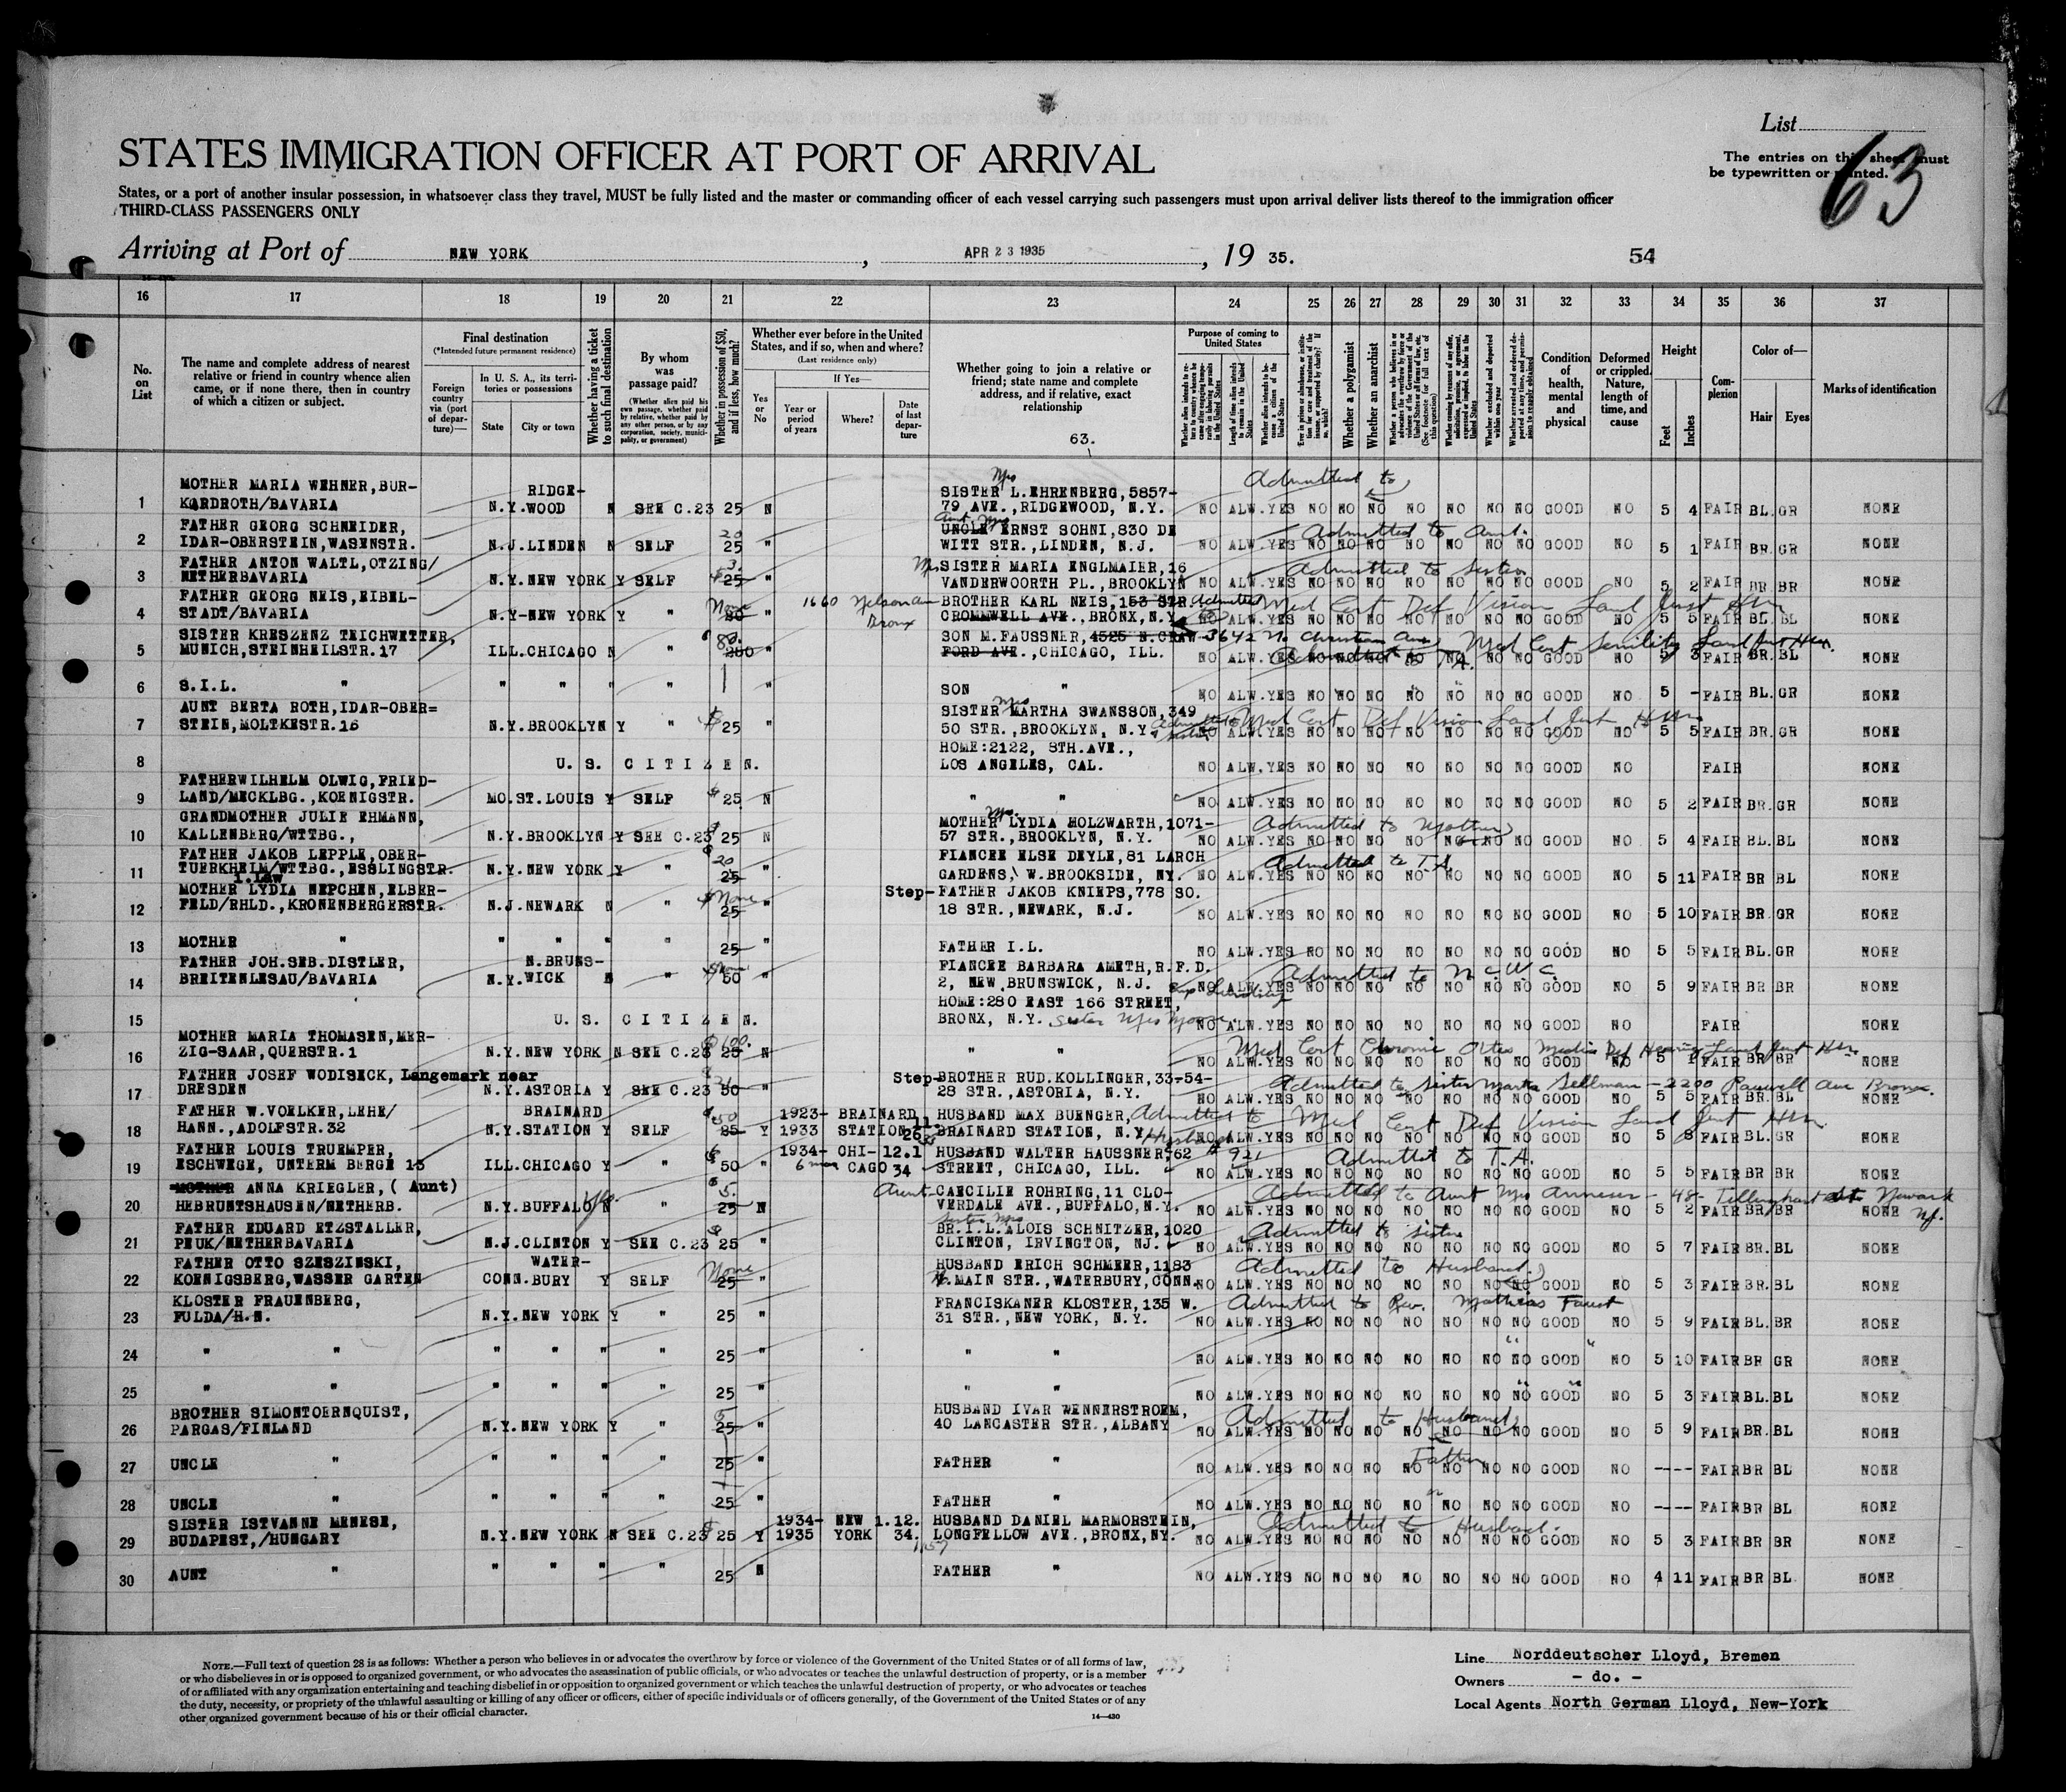 List
63
The entries on this sheet must
be typewritten or printed.
STATES IMMIGRATION OFFICER AT PORT OF ARRIVAL
States, or a port of another insular possession, in whatsoever class they travel, MUST be fully listed and the master or commanding officer of each vessel carrying such passengers must upon arrival deliver lists thereof to the immigration officer
THIRD-CLASS PASSENGERS ONLY
Arriving at Port of NEW YORK, APR 23 1935, 19 35. 54
16 17 18 19 20 21 22 23 24 25 26 27 28 29 30 31 32 33 34 35 36 37
No. on List
The name and complete address of nearest relative or friend in country whence alien came, or if none there, then in country of which a citizen or subject.
Final destination
(*Intended future permanent residence)
Foreign country via (port of departure)—
In U. S. A., its territories or possessions
State City or town
Whether having a ticket to such final destination
By whom was passage paid?
(Whether alien paid his own passage, whether paid by relative, whether paid by any other person, or by any corporation, society, municipality, or government)
Whether in possession of $50, and if less, how much?
Whether ever before in the United States, and if so, when and where?
(Last residence only)
Yes or No
If Yes—
Year or period of years Where? Date of last departure
Whether going to join a relative or friend; state name and complete address, and if relative, exact relationship
63.
Purpose of coming to United States
Whether a polygamist
Whether an anarchist
Condition of health, mental and physical
Deformed or crippled. Nature, length of time, and cause
Height
Feet Inches
Complexion
Color of—
Hair Eyes
Marks of identification
1 MOTHER MARIA WEHNER, BURKARDROTH/BAVARIA N.Y. RIDGEWOOD N SEE C.23 25 N Mrs SISTER L. EHRENBERG, 5857-79 AVE., RIDGEWOOD, N.Y. Admitted to NO ALW. YES NO NO NO NO NO NO NO GOOD NO 5 4 FAIR BL. GR NONE
2 FATHER GEORG SCHNEIDER, IDAR-OBERSTEIN, WASENSTR. N.J. LINDEN N SELF 20 25 " Aunt Mrs UNCLE ERNST SOHNI, 830 DE WITT STR., LINDEN, N.J. Admitted to Aunt. NO ALW. YES NO NO NO NO NO NO NO GOOD NO 5 1 FAIR BR. GR NONE
3 FATHER ANTON WALTL, OTZING/NETHERBAVARIA N.Y. NEW YORK Y SELF 3. 25 " Mrs. SISTER MARIA ENGLMAIER, 16 VANDERWOORTH PL., BROOKLYN Admitted to sister NO ALW. YES NO NO NO NO NO NO NO GOOD NO 5 2 FAIR BR BR NONE
4 FATHER GEORG NEIS, EIBELSTADT/BAVARIA N.Y-NEW YORK Y " None " 1660 Nelson Ave Bronx BROTHER KARL NEIS, 153 STR. CROMWELL AVE., BRONX, N.Y. Admitted to Med Cert Def Vision NO ALW. YES NO NO NO NO NO NO NO GOOD NO 5 5 FAIR BL. BL NONE
5 SISTER KRESZENZ TEICHWETTER, MUNICH, STEINHEILSTR. 17 ILL. CHICAGO N " 80. 200 " SON M. FAUSSNER, 4525 N. CRAWFORD AVE., CHICAGO, ILL. 3642 N. Christian Ave Admitted to T.A. Med Cert Senility NO ALW. YES NO NO NO NO NO NO NO GOOD NO 5 3 FAIR BR. BL NONE
6 S.I.L. " " " " " " SON " NO ALW. YES NO NO NO NO NO NO NO GOOD NO 5 - FAIR BL. GR NONE
7 AUNT BERTA ROTH, IDAR-OBER=STEIN, MOLTKESTR. 16 N.Y. BROOKLYN Y " $ 25 " Mrs SISTER MARTHA SWANSSON, 349 50 STR., BROOKLYN, N.Y. Admitted to sister Med Cert Def Vision NO ALW. YES NO NO NO NO NO NO NO GOOD NO 5 5 FAIR BR. GR NONE
8 U. S. CITIZEN. HOME: 2122, 8TH. AVE., LOS ANGELES, CAL. NO ALW. YES NO NO NO NO NO NO NO GOOD NO FAIR NONE
9 FATHER WILHELM OLWIG, FRIEDLAND/MECKLBG., KOENIGSTR. MO. ST. LOUIS Y SELF $ 25 N " " NO ALW. YES NO NO NO NO NO NO NO GOOD NO 5 2 FAIR BR. GR NONE
10 GRANDMOTHER JULIE EHMANN, KALLENBERG/WTTBG., N.Y. BROOKLYN Y SEE C.23 25 N Mrs. MOTHER LYDIA HOLZWARTH, 1071-57 STR., BROOKLYN, N.Y. Admitted to Mother NO ALW. YES NO NO NO NO NO NO NO GOOD NO 5 4 FAIR BL. BL NONE
11 FATHER JAKOB LEPPLE, OBERTUERKHEIM/WTTBG., ESSLINGSTR. N.Y. NEW YORK Y " 20 25 " FIANCEE ELSE DEYLE, 81 LARCH GARDENS, W. BROOKSIDE, NY. Admitted to T.A. NO ALW. YES NO NO NO NO NO NO NO GOOD NO 5 11 FAIR BR BL NONE
12 i.law MOTHER LYDIA NEPCHEN, ELBERFELD/RHLD., KRONENBERGERSTR. N.J. NEWARK N " None 25 " Step-FATHER JAKOB KNIEPS, 778 SO. 18 STR., NEWARK, N.J. NO ALW. YES NO NO NO NO NO NO NO GOOD NO 5 10 FAIR BR. GR NONE
13 MOTHER " " " " " 25 " FATHER I.L. NO ALW. YES NO NO NO NO NO NO NO GOOD NO 5 5 FAIR BL. GR NONE
14 FATHER JOH. SEB. DISTLER, BREITENLESAU/BAVARIA N.Y. N.BRUNSWICK N " 50 " FIANCEE BARBARA AMETH, R.F.D. 2, NEW BRUNSWICK, N.J. Admitted to N.C.W.C. NO ALW. YES NO NO NO NO NO NO NO GOOD NO 5 9 FAIR BR BR NONE
15 U. S. CITIZEN. HOME: 280 EAST 166 STREET, BRONX, N.Y. NO ALW. YES NO NO NO NO NO NO NO GOOD NO FAIR NONE
16 MOTHER MARIA THOMASEN, MERZIG-SAAR, QUERSTR. 1 N.Y. NEW YORK N SEE C.23 100. 25 N " " Med Cert Chronic Otitis Media Def Hearing NO ALW. YES NO NO NO NO NO NO NO GOOD NO 5 1 FAIR BR BR NONE
17 FATHER JOSEF WODISECK, Langemark near DRESDEN N.Y. ASTORIA Y SEE C.23 50 " Step-BROTHER RUD. KOLLINGER, 33-54-28 STR., ASTORIA, N.Y. Admitted to sister Marta Sellman - 2200 Ave Bronx NO ALW. YES NO NO NO NO NO NO NO GOOD NO 5 5 FAIR BR. BL NONE
18 FATHER W. VOELKER, LEHE/HANN., ADOLFSTR. 32 N.Y. BRAINARD STATION Y SELF 50 25 Y 1923-1933 BRAINARD STATION HUSBAND MAX BUENGER, BRAINARD STATION, N.Y. Admitted to Husband Med Cert Def Vision NO ALW. YES NO NO NO NO NO NO NO GOOD NO 5 8 FAIR BL. GR NONE
19 FATHER LOUIS TRUEMPER, ESCHWEGE, UNTERM BERGE 15 ILL. CHICAGO Y " 50 " 1934- 6 mos CHICAGO 12.1 34 HUSBAND WALTER HAUSSNER, 62 STREET, CHICAGO, ILL. # 921 Admitted to T.A. NO ALW. YES NO NO NO NO NO NO NO GOOD NO 5 5 FAIR BR BR NONE
20 MOTHER ANNA KRIEGLER, (Aunt) HEBRUNTSHAUSEN/NETHERB. N.Y. BUFFALO N " 5. 25 N Aunt-CAECILIE ROHRING, 11 CLOVERDALE AVE., BUFFALO, N.Y. Admitted to Aunt Mrs - 48 - Tillinghast St Newark NJ. NO ALW. YES NO NO NO NO NO NO NO GOOD NO 5 2 FAIR BR BR NONE
21 FATHER EDUARD ETZSTALLER, PEUK/NETHERBAVARIA N.J. CLINTON Y SEE C.23 25 " Sister Mrs BR.I.L. ALOIS SCHNITZER, 1020 CLINTON, IRVINGTON, NJ. Admitted to sister NO ALW. YES NO NO NO NO NO NO NO GOOD NO 5 7 FAIR BR. BL NONE
22 FATHER OTTO SZESZINSKI, KOENIGSBERG, WASSER GARTEN CONN. WATERBURY Y SELF None 25 " HUSBAND ERICH SCHMEER, 1183 N. MAIN STR., WATERBURY, CONN. Admitted to Husband. NO ALW. YES NO NO NO NO NO NO NO GOOD NO 5 3 FAIR BR. BL NONE
23 KLOSTER FRAUENBERG, FULDA/H.N. N.Y. NEW YORK Y " 25 " FRANCISKANER KLOSTER, 135 W. 31 STR., NEW YORK, N.Y. Admitted to Rev. Mathias Faust NO ALW. YES NO NO NO NO NO NO NO GOOD NO 5 9 FAIR BL. BR NONE
24 " " " " " " 25 " " " NO ALW. YES NO NO NO NO NO NO NO GOOD NO 5 10 FAIR BR GR NONE
25 " " " " " " 25 " " " NO ALW. YES NO NO NO NO NO NO NO GOOD NO 5 3 FAIR BL. BL NONE
26 BROTHER SIMONTOERNQUIST, PARGAS/FINLAND N.Y. NEW YORK Y " 5 25 " HUSBAND IVAR WENNERSTROEM, 40 LANCASTER STR., ALBANY Admitted to Husband NO ALW. YES NO NO NO NO NO NO NO GOOD NO 5 9 FAIR BR. BL NONE
27 UNCLE " " " " " 25 " FATHER " Father NO ALW. YES NO NO NO NO NO NO NO GOOD NO ---- FAIR BR BL NONE
28 UNCLE " " " " " 25 " FATHER " NO ALW. YES NO NO NO NO NO NO NO GOOD NO ---- FAIR BR BL NONE
29 SISTER ISTVANNE MENESE, BUDAPEST,/HUNGARY N.Y. NEW YORK N SEE C.23 25 Y 1934-1935 NEW YORK 1.12.34. HUSBAND DANIEL MARMORSTEIN, LONGFELLOW AVE., BRONX, NY. 1157 Admitted to Husband. NO ALW. YES NO NO NO NO NO NO NO GOOD NO 5 3 FAIR BR BR NONE
30 AUNT " " " " " 25 N FATHER " NO ALW. YES NO NO NO NO NO NO NO GOOD NO 4 11 FAIR BR BL NONE
NOTE.—Full text of question 28 is as follows: Whether a person who believes in or advocates the overthrow by force or violence of the Government of the United States or of all forms of law,
or who disbelieves in or is opposed to organized government, or who advocates the assassination of public officials, or who advocates or teaches the unlawful destruction of property, or is a member
of or affiliated with any organization entertaining and teaching disbelief in or opposition to organized government or which teaches the unlawful destruction of property, or who advocates or teaches
the duty, necessity, or propriety of the unlawful assaulting or killing of any officer or officers, either of specific individuals or of officers generally, of the Government of the United States or of any
other organized government because of his or their official character.
14—430
Line Norddeutscher Lloyd, Bremen
Owners - do. -
Local Agents North German Lloyd, New-York